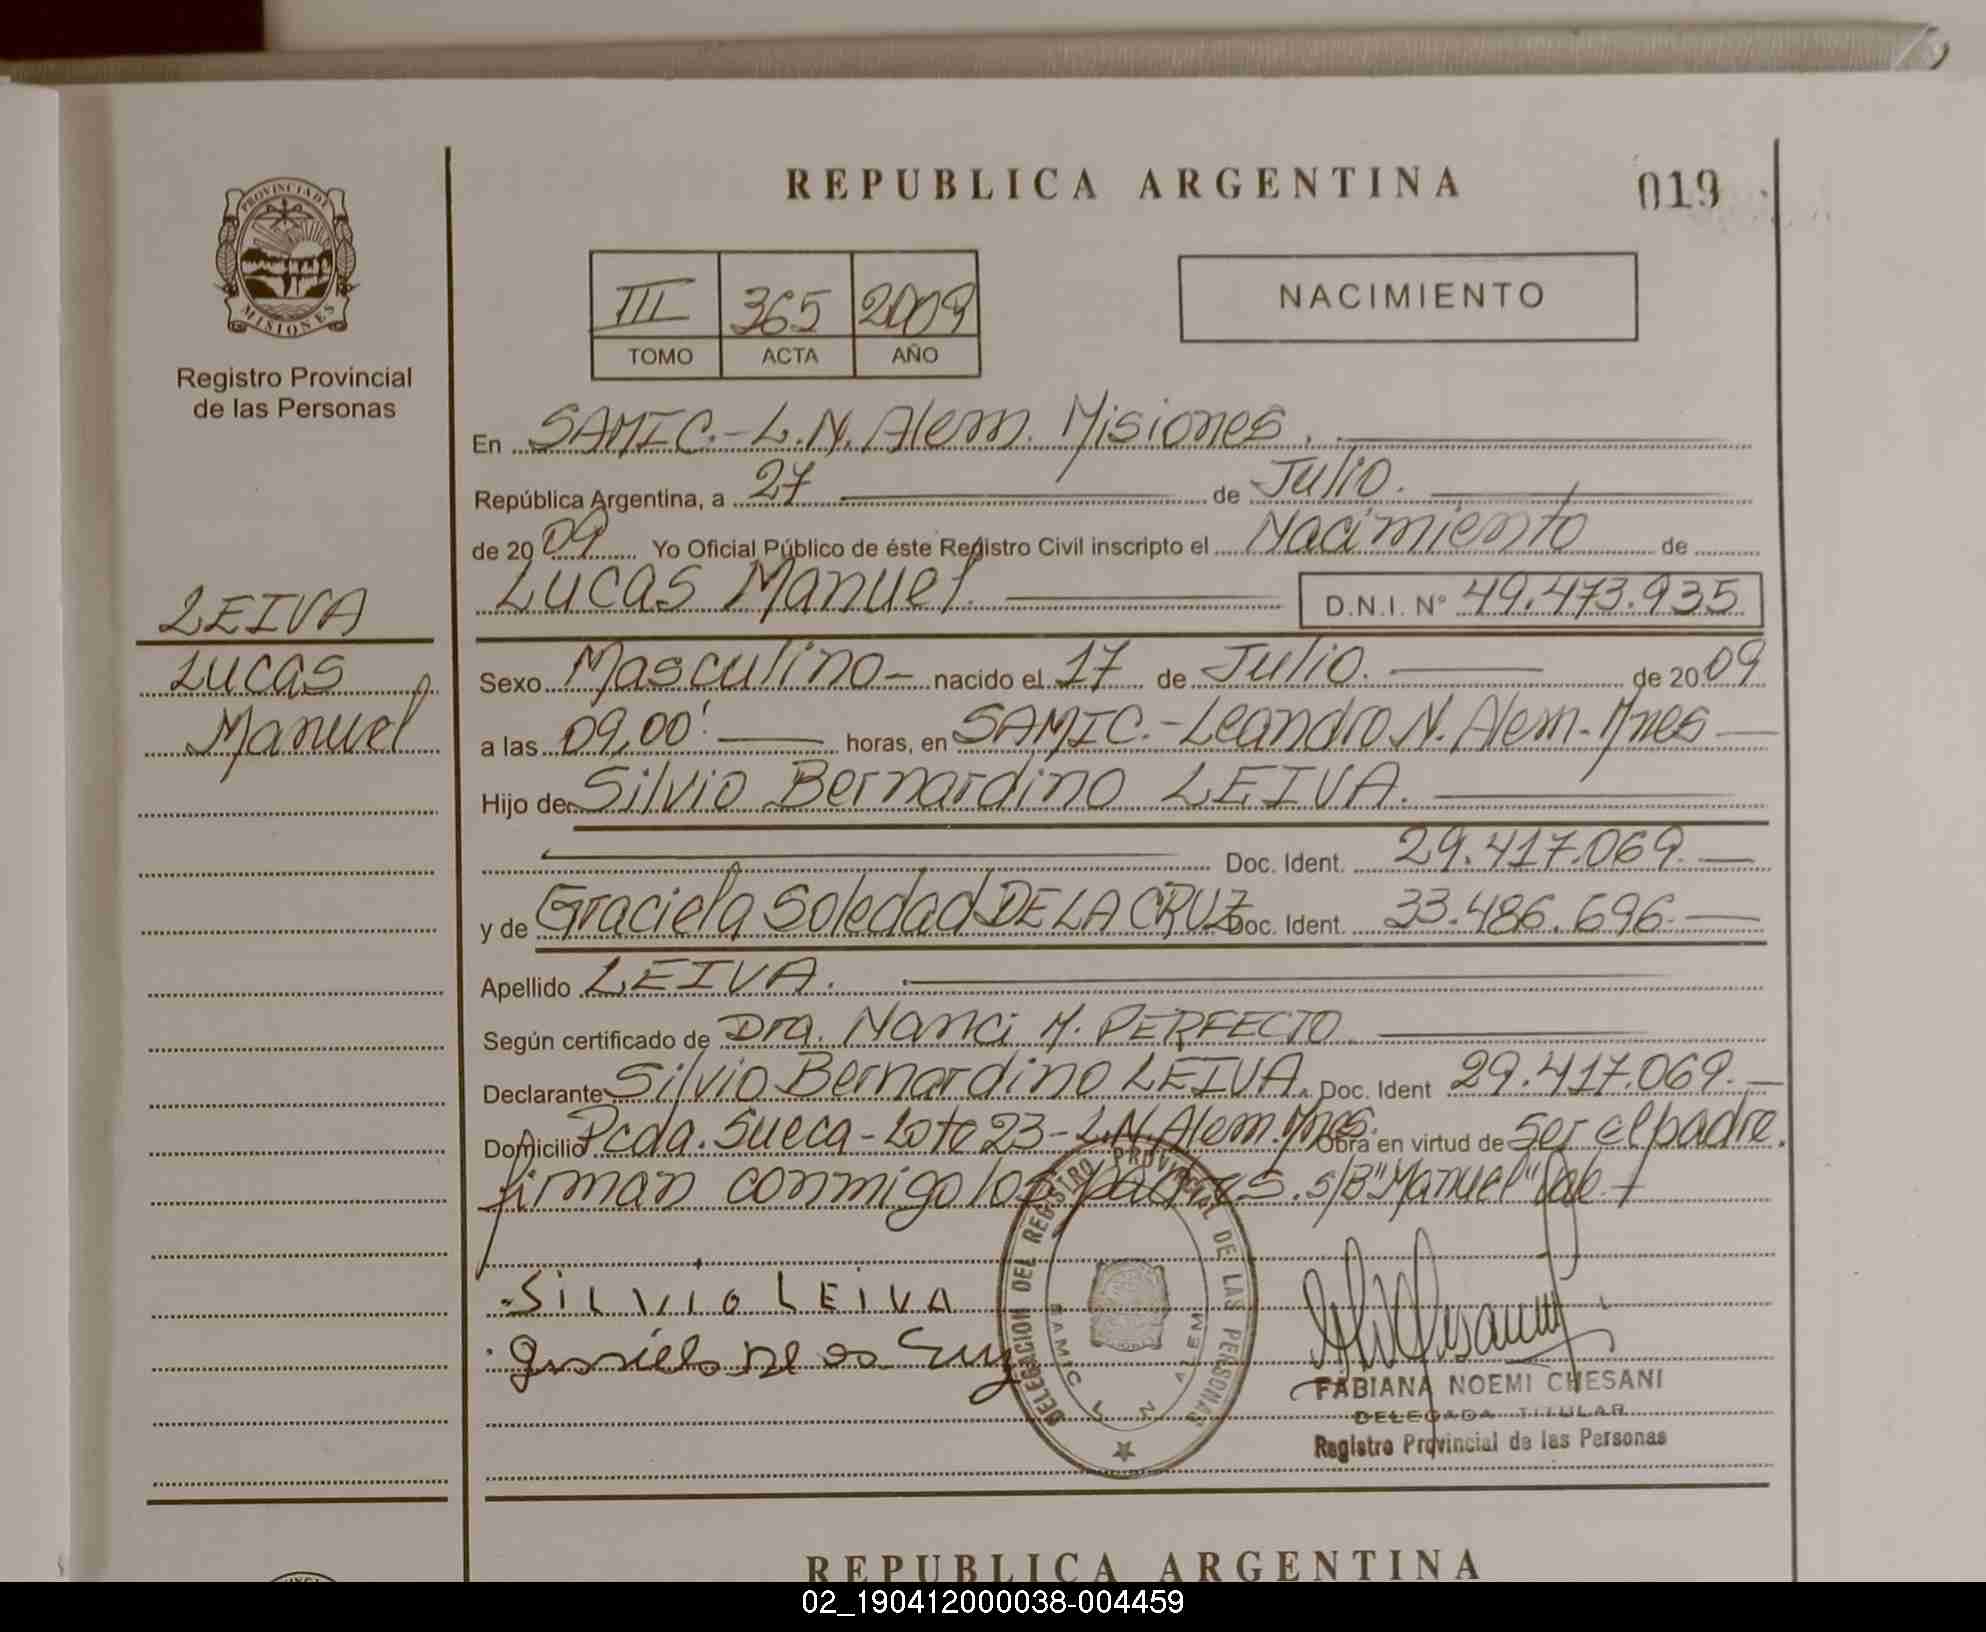 REPUBLICA ARGENTINA
019
PROVINCIA DE
MISIONES
Registro Provincial
de las Personas
III 365 2009
TOMO ACTA AÑO
NACIMIENTO
En SAMIC.-L.N. Alem. Misiones.
República Argentina, a 27 de Julio.
de 2009 Yo Oficial Público de éste Registro Civil inscripto el Nacimiento de
Lucas Manuel. D.N.I. Nº 49.473.935
LEIVA
Lucas
Manuel
Sexo Masculino- nacido el 17 de Julio. de 2009
a las 09,00'. horas, en SAMIC.-Leandro N. Alem.-Mnes
Hijo de Silvio Bernardino LEIVA.
Doc. Ident. 29.417.069.
y de Graciela Soledad DE LA CRUZ Doc. Ident. 33.486.696.
Apellido LEIVA.
Según certificado de Dra. Nanci M. PERFECTO
Declarante Silvio Bernardino LEIVA. Doc. Ident 29.417.069.
Domicilio Pcda. Sueca-Lote 23-L.N. Alem. Mnes. Obra en virtud de ser el padre.
firman conmigo los padres. s/B "Manuel" Vale.
SiLViO LEiVA
DE LA Cruz
DELEGACION DEL REGISTRO PROVINCIAL DE LAS PERSONAS
SAMIC L N ALEM
FABIANA NOEMI CHESANI
DELEGADA TITULAR
Registro Provincial de las Personas
REPUBLICA ARGENTINA
02_190412000038-004459